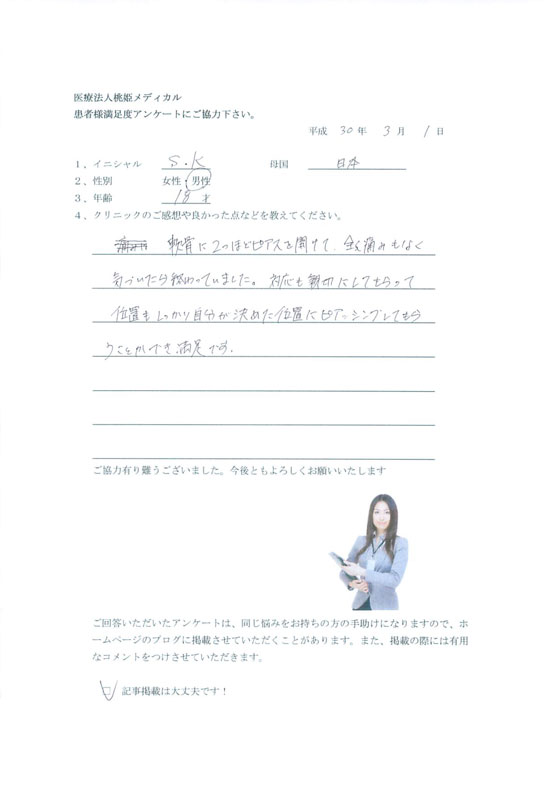 医療法人桃姫メディカル
患者様満足度アンケートにご協力下さい。
平成 30 年 3 月 1 日
1、イニシャル S.K 母国 日本
2、性別 女性・男性
3、年齢 18 才
4、クリニックのご感想や良かった点などを教えてください。
軟骨に2つほどピアスを開けて、全く痛みもなく
気づいたら終わっていました。対応も親切にしてもらって
位置もしっかり自分が決めた位置にピアッシングしてもら
うことができ満足です。
ご協力有り難うございました。今後ともよろしくお願いいたします
ご回答いただいたアンケートは、同じ悩みをお持ちの方の手助けになりますので、ホ
ームページのブログに掲載させていただくことがあります。また、掲載の際には有用
なコメントをつけさせていただきます。
記事掲載は大丈夫です！